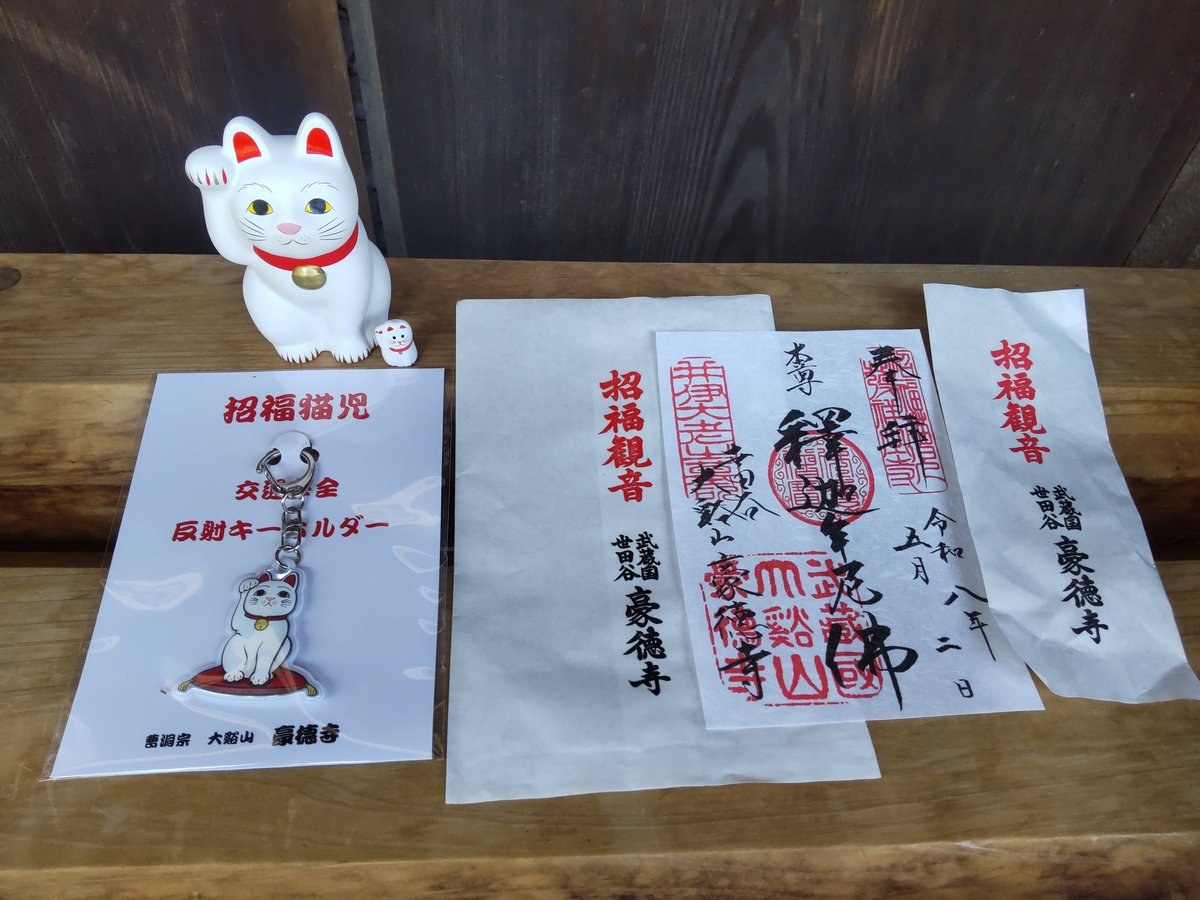 招福猫児
交通安全
反射キーホルダー
曹洞宗 大谿山 豪徳寺
招福観音
武蔵国
世田谷
豪徳寺
奉拝
令和八年
五月二日
本尊
釋迦牟尼佛
世田谷
大谿山豪德寺
井伊大老
武藏國
大谿山
豪德寺
招福観音
武蔵国
世田谷
豪徳寺